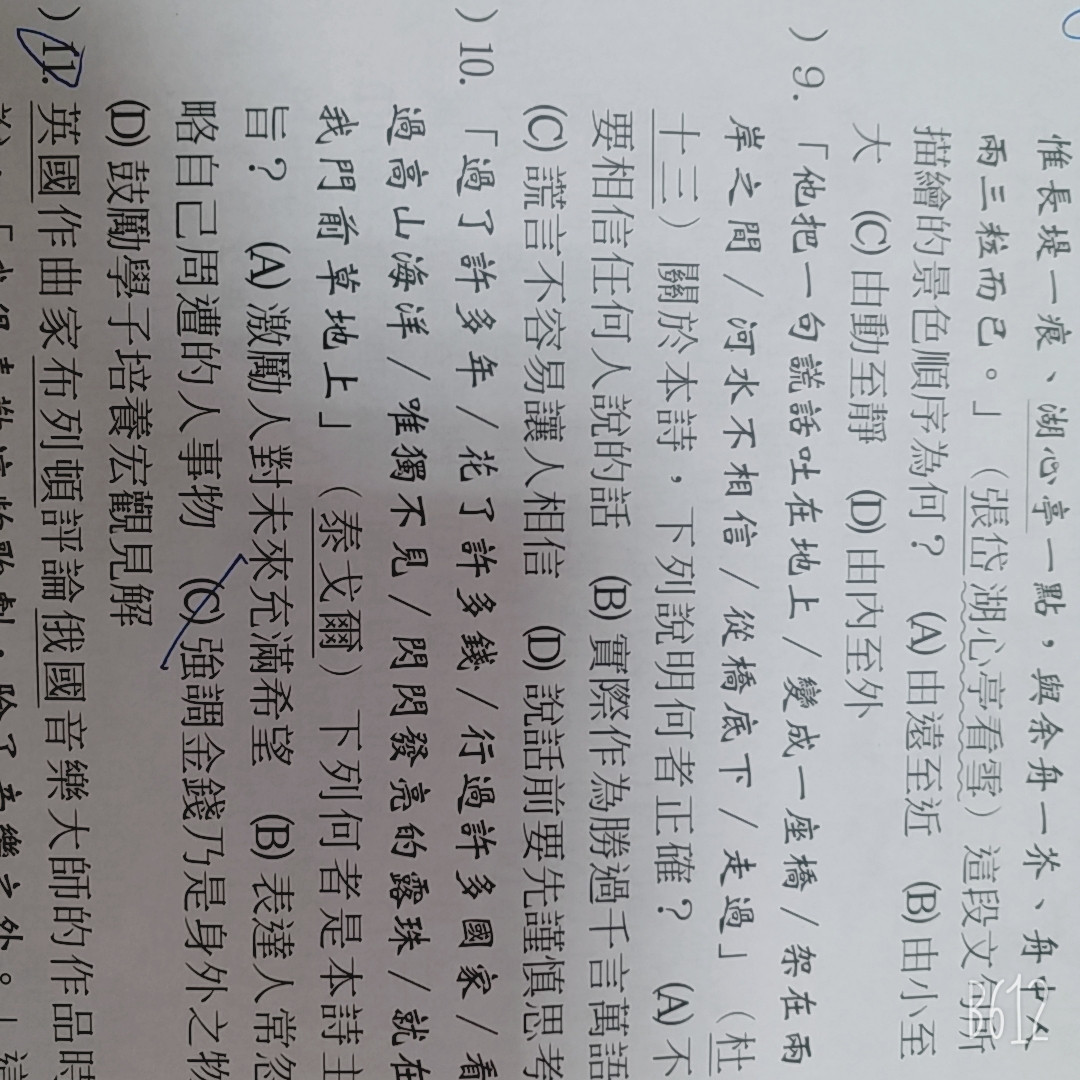 惟長堤一痕、湖心亭一點，與余舟一芥、舟中人
兩三粒而已。」（張岱湖心亭看雪）這段文句所
描繪的景色順序為何？ (A)由遠至近 (B)由小至
大 (C)由動至靜 (D)由內至外
）9.「他把一句謊話吐在地上／變成一座橋／架在兩
岸之間／河水不相信／從橋底下／走過」（杜
十三）關於本詩，下列說明何者正確？ (A)不
要相信任何人說的話 (B)實際作為勝過千言萬語
(C)謊言不容易讓人相信 (D)說話前要先謹慎思考
）10.「過了許多年／花了許多錢／行過許多國家／看
過高山海洋／唯獨不見／閃閃發亮的露珠／就在
我門前草地上」（泰戈爾）下列何者是本詩主
旨？ (A)激勵人對未來充滿希望 (B)表達人常忽
略自己周遭的人事物 (C)強調金錢乃是身外之物
(D)鼓勵學子培養宏觀見解
）11.英國作曲家布列頓評論俄國音樂大師的作品時
B612